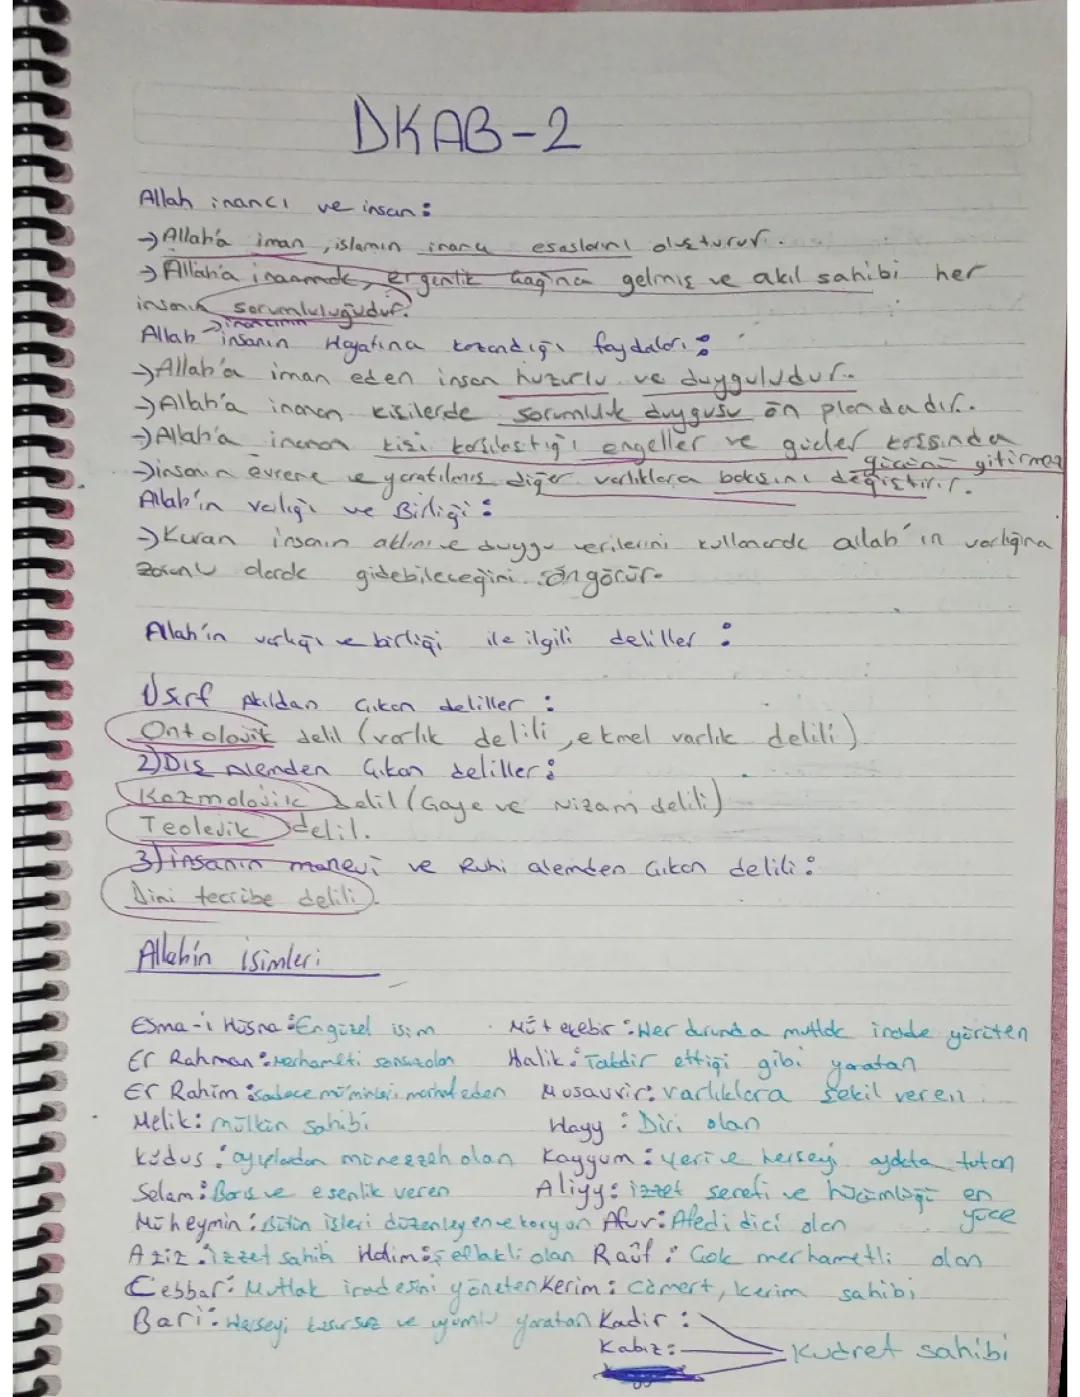 DKAB-2
Allah inancı ve insan:
→Allah'a iman, islamın inanç esaslarını oluşturur.
→Allah'a inanmak, ergenlik çağına gelmiş ve akıl sahibi her
insanın sorumluluğudur.
→inancının
Allah insanın Hayatına kazandığı faydaları:
→Allah'a iman eden insan huzurlu ve duyguludur.
→Allah'a inanan kişilerde sorumluluk duygusu ön plandadır.
→Allah'a inanan kişi karşılaştığı engeller ve güçler karşısında
gücünü yitirmez
→insanın evrene ve yaratılmış diğer varlıklara bakışını değiştirir.
Allah'ın varlığı ve Birliği:
→Kuran insanın aklını ve duygu verilerini kullanarak allah'ın varlığına
zorunlu olarak gidebileceğini öngörür.
Allah'ın varlığı ve birliği ile ilgili deliller:
1)Sırf Akıldan Çıkan deliller:
Ontolojik delil (varlık delili, ekmel varlık delili)
2)Dış Alemden Çıkan deliller:
Kozmolojik delil (Gaye ve Nizam delili)
Teolejik delil.
3)insanın manevi ve Ruhi alemden Çıkan delili:
Dini tecribe delili.
Allahın isimleri
Esma-i Hüsna: En güzel isim
Er Rahman: Merhameti sonsuz olan
Er Rahim: sadece müminleri merhamet eden
Melik: mülkün sahibi
Kudus: ayıplardan münezzeh olan
Selam: Barış ve esenlik veren
Müheymin: Bütün işleri düzenleyen ve koruyan
Aziz: izzet sahibi Halim: şefkatli olan
Cebbar: Mutlak iradesini yöneten
Bari: Herşeyi kusursuz ve uyumlu yaratan
Mütekebir: Her durumda mutlak irade yürüten
Halik: Takdir ettiği gibi yaratan
Musavvir: varlıklara şekil veren.
Hayy: Diri olan
Kayyum: yeri ve herşeyi ayakta tutan
Aliyy: izzet şerefi ve hükümlüğü en
yüce
Afuv: Afedi dici olan
Raûf: Çok merhametli olan
Kerim: cömert, kerim sahibi
Kadir:
Kabız:
Kudret sahibi